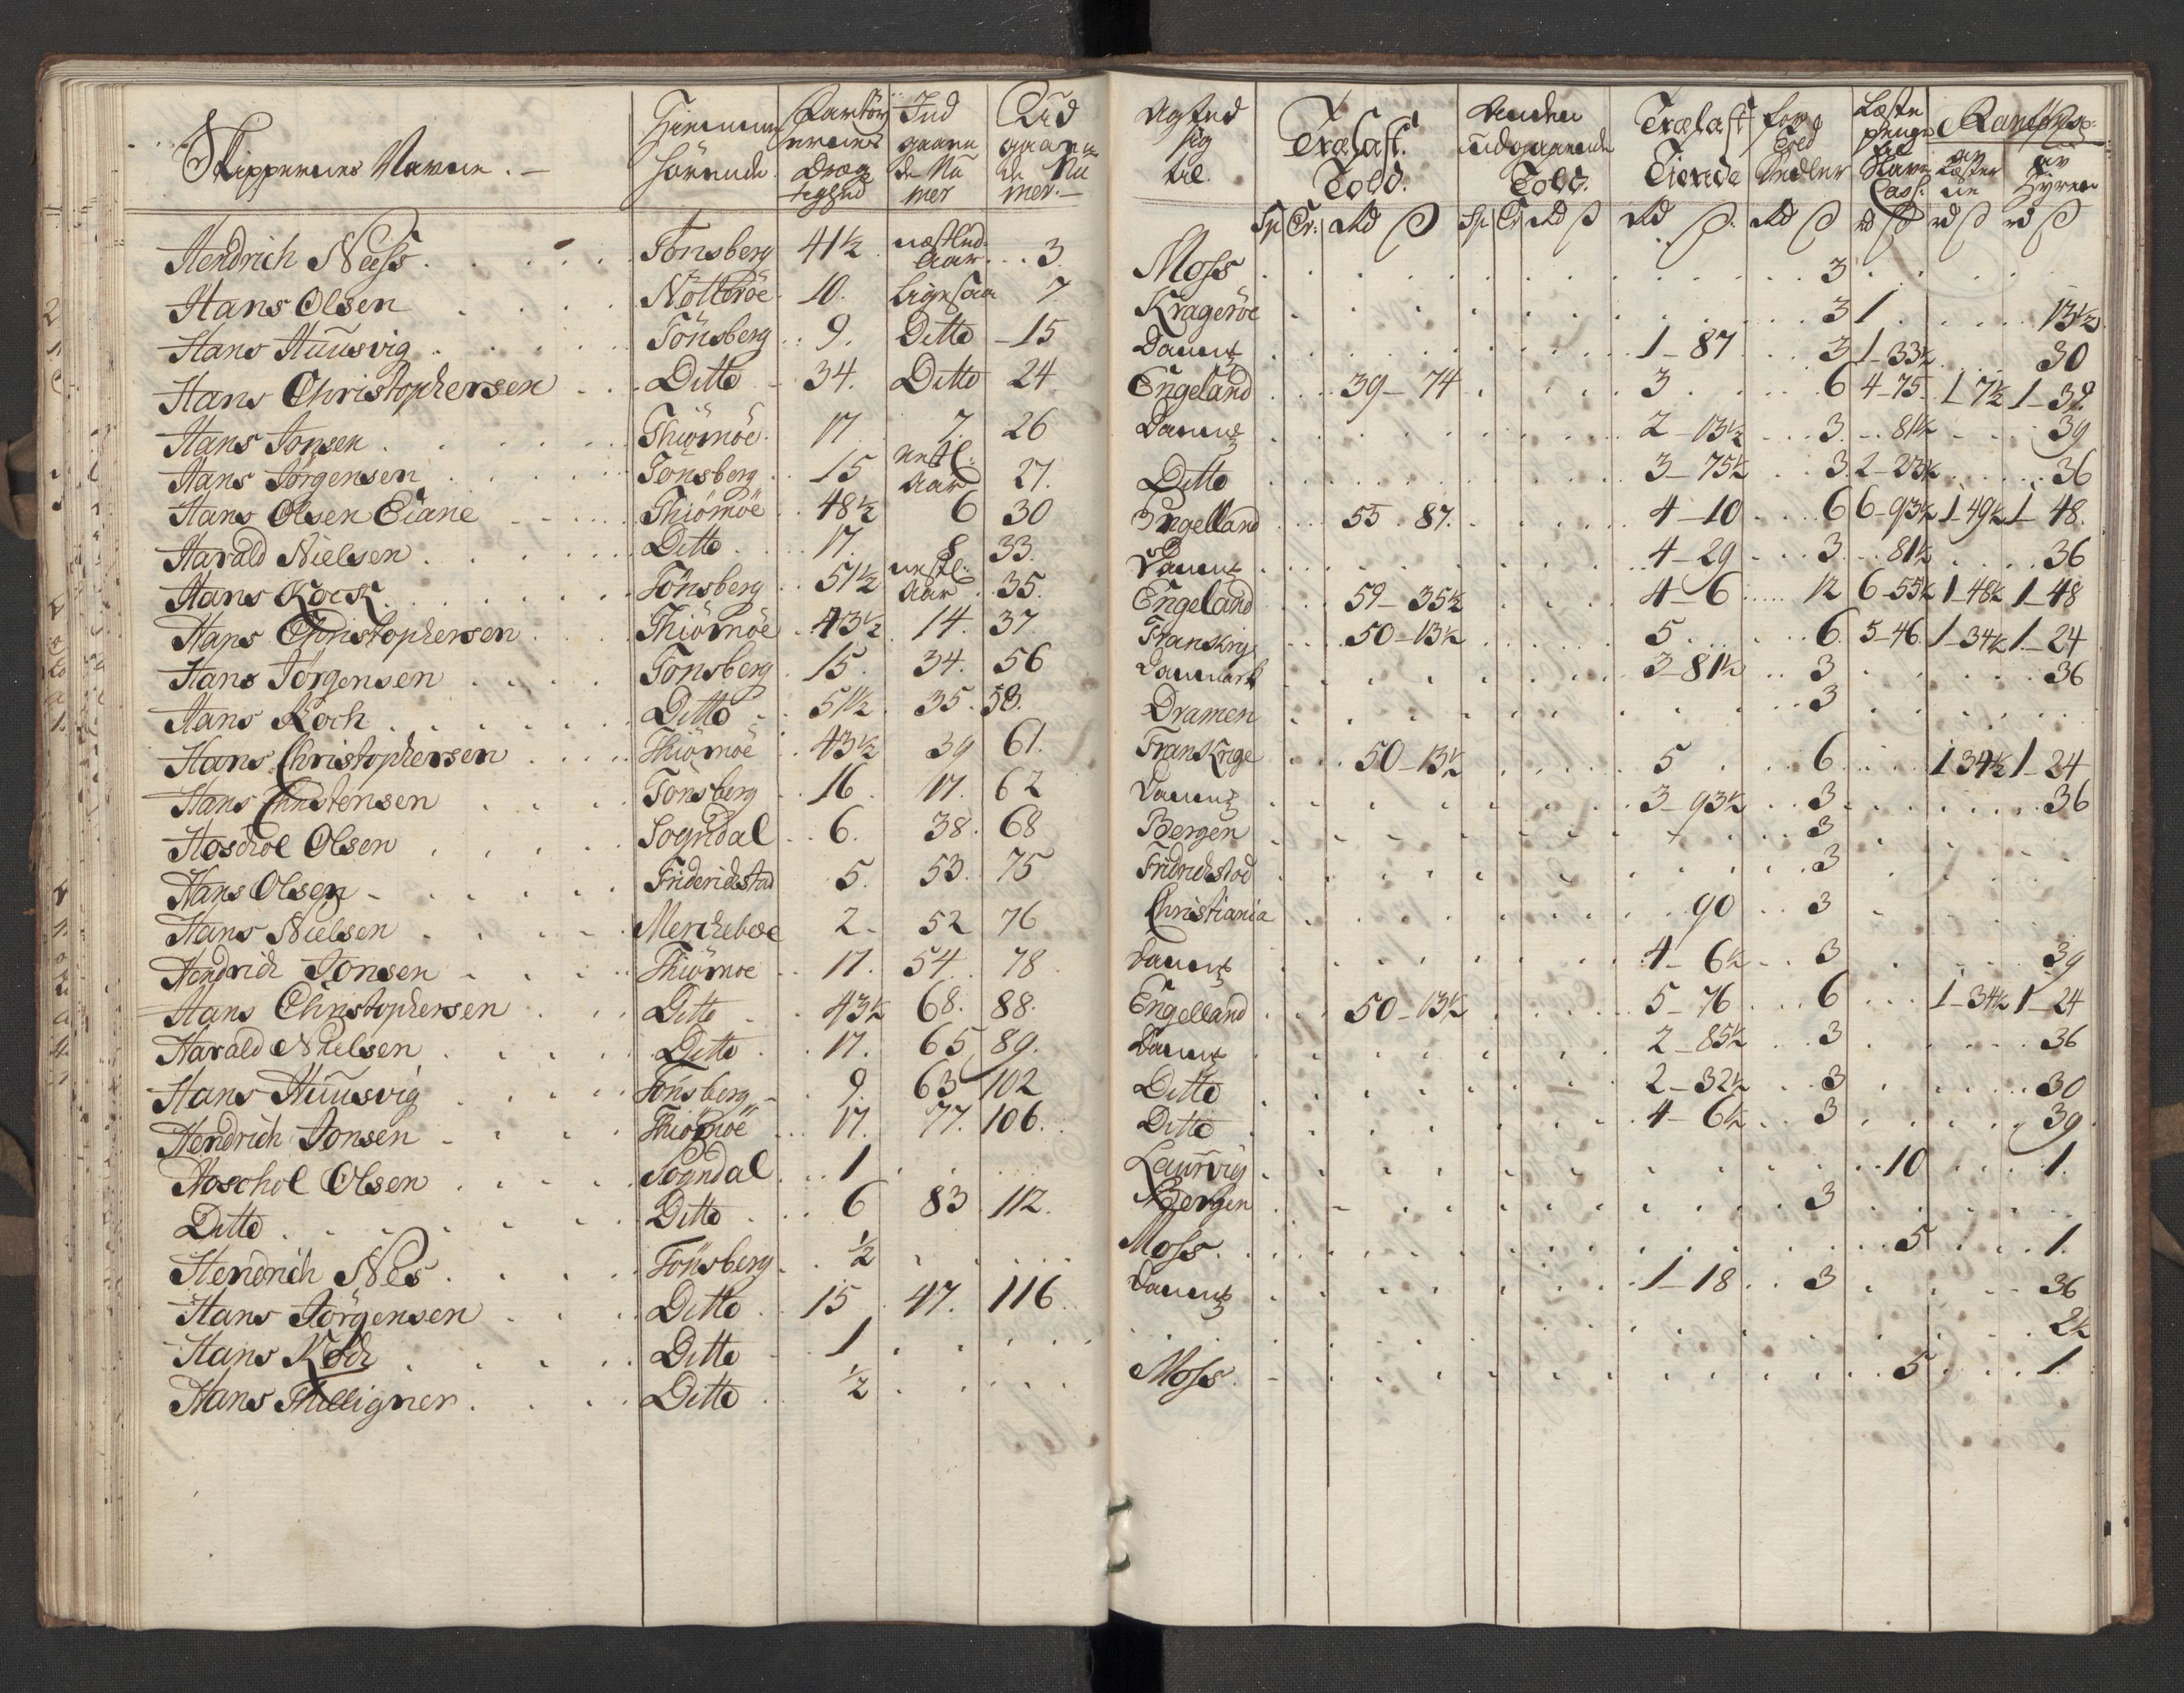 Skippernes Navne. Hiemme hörende. Fartöy ernes Dræg tighed Ind gaaen de Nu mer Ud gaaen de Nu mer. Agted sig til Trælast Told. Anden udgaaende Told. Trælast Tiende for Told Sedler Læste penge Slave Cass: Ranz af Læster ne af Hyren
Sp Cr: Rd ß Sp Cr Rd ß Rd ß Rd ß rd ß rd ß rd ß
Hendrich Næss Tonsberg 41½ næstled: Aar 3 Moss 3
Hans Olsen Nötteröe 10. ligesaa 7 Krageröe 3 1 13½
Hans Huusvig Tönsberg 9. Ditto 15 Danm 1-87 3 1-33½ 30
Hans Christophersen Ditto 34. Ditto 24 Engeland 39-74 3 6 4-75 1-7½ 1-39
Hans Jonsen Thiömöe 17 7. 26 Danm 2-13½ 3. 81½ 39
Hans Jörgensen Tönsberg 15 nestl: Aar 27. Ditto 3-75½ 3. 2-23½ 36
Hans Olsen Eiane Thiömöe 48½ 6 30 Engelland 55. 87. 4-10 6 6-93½ 1-49½ 1-48.
Harald Nielsen Ditto 17. 8. 33. Danm 4-29 3. 81½ 36
Hans Kock Tönsberg 51½ nestl: Aar 35. Engeland 59-35½ 4-6 12 6-55½ 1-48½ 1-48
Hans Christophersen Thiömöe 43½ 14. 37 Franskrig 50-13½ 5 6. 5-46. 1-34½ 1-24
Hans Jörgensen Tonsberg 15. 34. 56 Danmark 3-81½ 3 36
Hans Koch Ditto 51½ 35. 58. Dramen 3
Hans Christophersen Thiömöe 43½ 39 61. Frankrige 50-13½ 5 6 1 34½ 1-24
Hans Christensen Tonsberg 16 17. 62 Danm 3-93½ 3 36
Hoschol Olsen Sogndal 6. 38. 68 Bergen 3
Hans Olsen Friderichstad 5. 53. 75 Fridrichstad 3
Hans Nielsen Mercheböe 2 52 76 Christiania 90 3
Hendrich Jonsen Thiömoe 17. 54. 78 Danm 4-6½ 3 39
Hans Christophersen Ditto 43½ 68. 88. Engelland 50-13½ 5-76 6 1-34½ 1-24
Harald Nielsen Ditto 17. 65 89. Danm 2-85½ 3 36
Hans Huusvig Tonsberg 9. 63 102 Ditto 2-32½ 3 30
Hendrich Jonsen Thiömöe 17. 77. 106. Ditto 4-6½ 3 39
Hoschol Olsen Sogndal 1 Laurvig 10 1.
Ditto Ditto 6 83 112. Bergen 3
Hendrich Nes Tönsberg ½ Moss 5 1.
Hans Jörgensen Ditto 15 47. 116. Danm 1-18 3 36
Hans Koch Ditto 1 2½
Hans Ditto ½ Moss 5 1